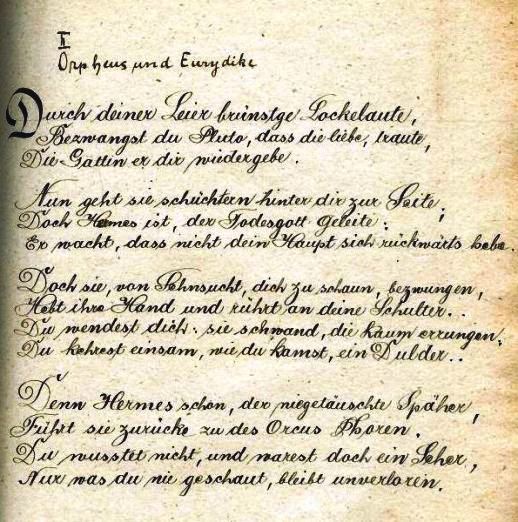 II
Orpheus und Eurydike
Durch deiner Leier brünstge Lockelaute,
Bezwangst du Pluto, dass die liebe, traute,
Die Gattin er dir wiedergebe.
Nun geht sie schüchtern hinter dir zur Seite;
Doch Hermes ist, der Todesgott Geleite:
Er wacht, dass nicht dein Haupt sich rückwärts hebe.
Doch sie, von Sehnsucht, dich zu schaun, bezwungen,
Hebt ihre Hand und rührt an deine Schulter..
Du wendest dich: sie schwand, die kaum errungen.
Du kehrest einsam, wie du kamst, ein Dulder..
Denn Hermes schon, der niegetäuschte Späher,
Führt sie zurücke zu des Orcus Thoren.
Du wusstet nicht, und warest doch ein Seher,
Nur was du nie geschaut, bleibt unverloren.